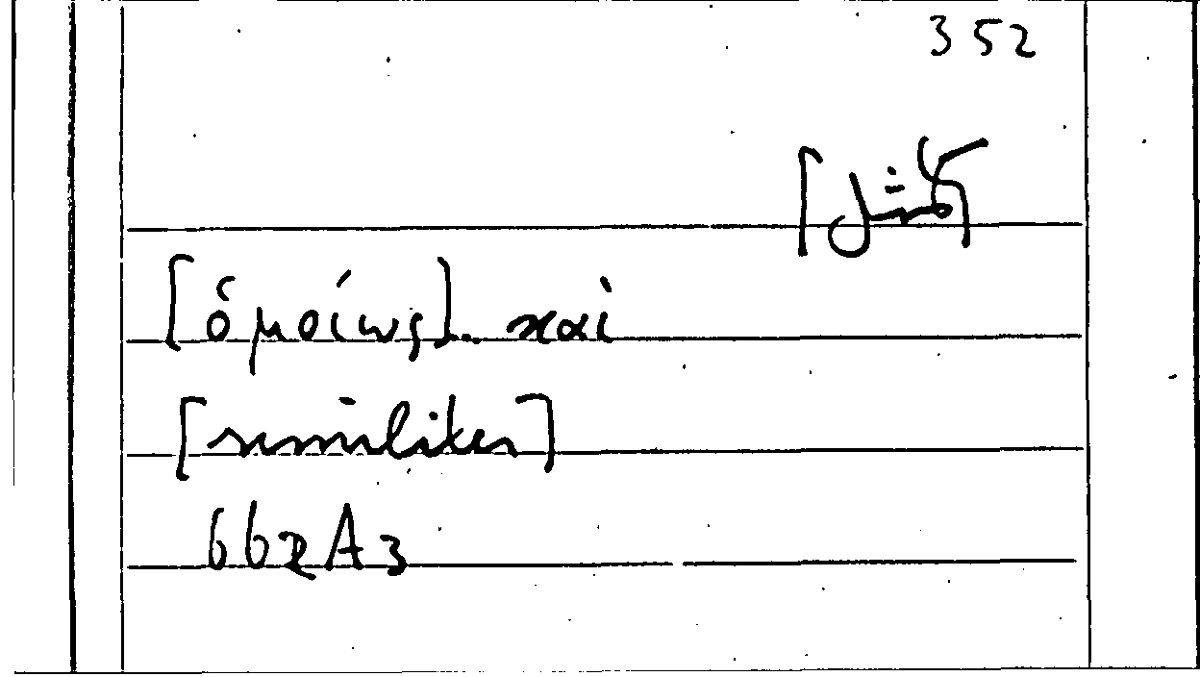 352
[ὁμοίως].. καὶ
[similiter]
662A3